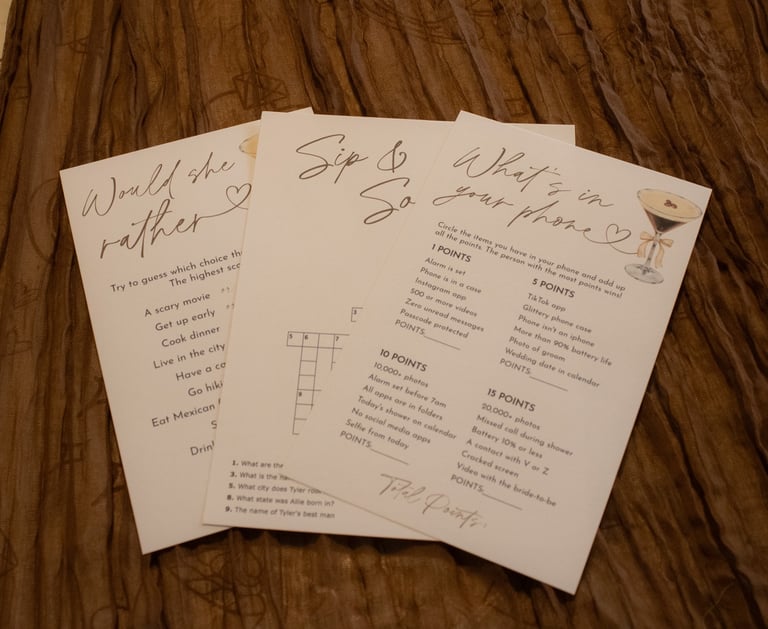 Would she
rather
Try to guess which choice the
The highest
A scary movie
Get up early
Cook dinner
Live in the city
Have a
Go
Eat Mexican
Sip &
1. What are the
3. What is the
5. What city does Tyler
8. What state was Allie born in?
9. The name of Tyler's best man
3
5 6 7
9
What's in
your phone
Circle the items you have in your phone and add up
all the points. The person with the most points wins!
1 POINTS
Alarm is set
Phone is in case
Instagram app
500 or more videos
Zero unread messages
Passcode protected
POINTS______
5 POINTS
TikTok app
Glittery phone case
Phone isn't an iphone
More than 90% battery life
Photo of groom
Wedding date in calendar
POINTS______
10 POINTS
10,000+ photos
Alarm set before 7am
All apps are in folders
Today's shower on calendar
No social media apps
Selfie from today
POINTS______
15 POINTS
20,000+ photos
Missed call during shower
Battery 10% or less
A contact with V or Z
Cracked screen
Video with the bride-to-be
POINTS______
Total Points: